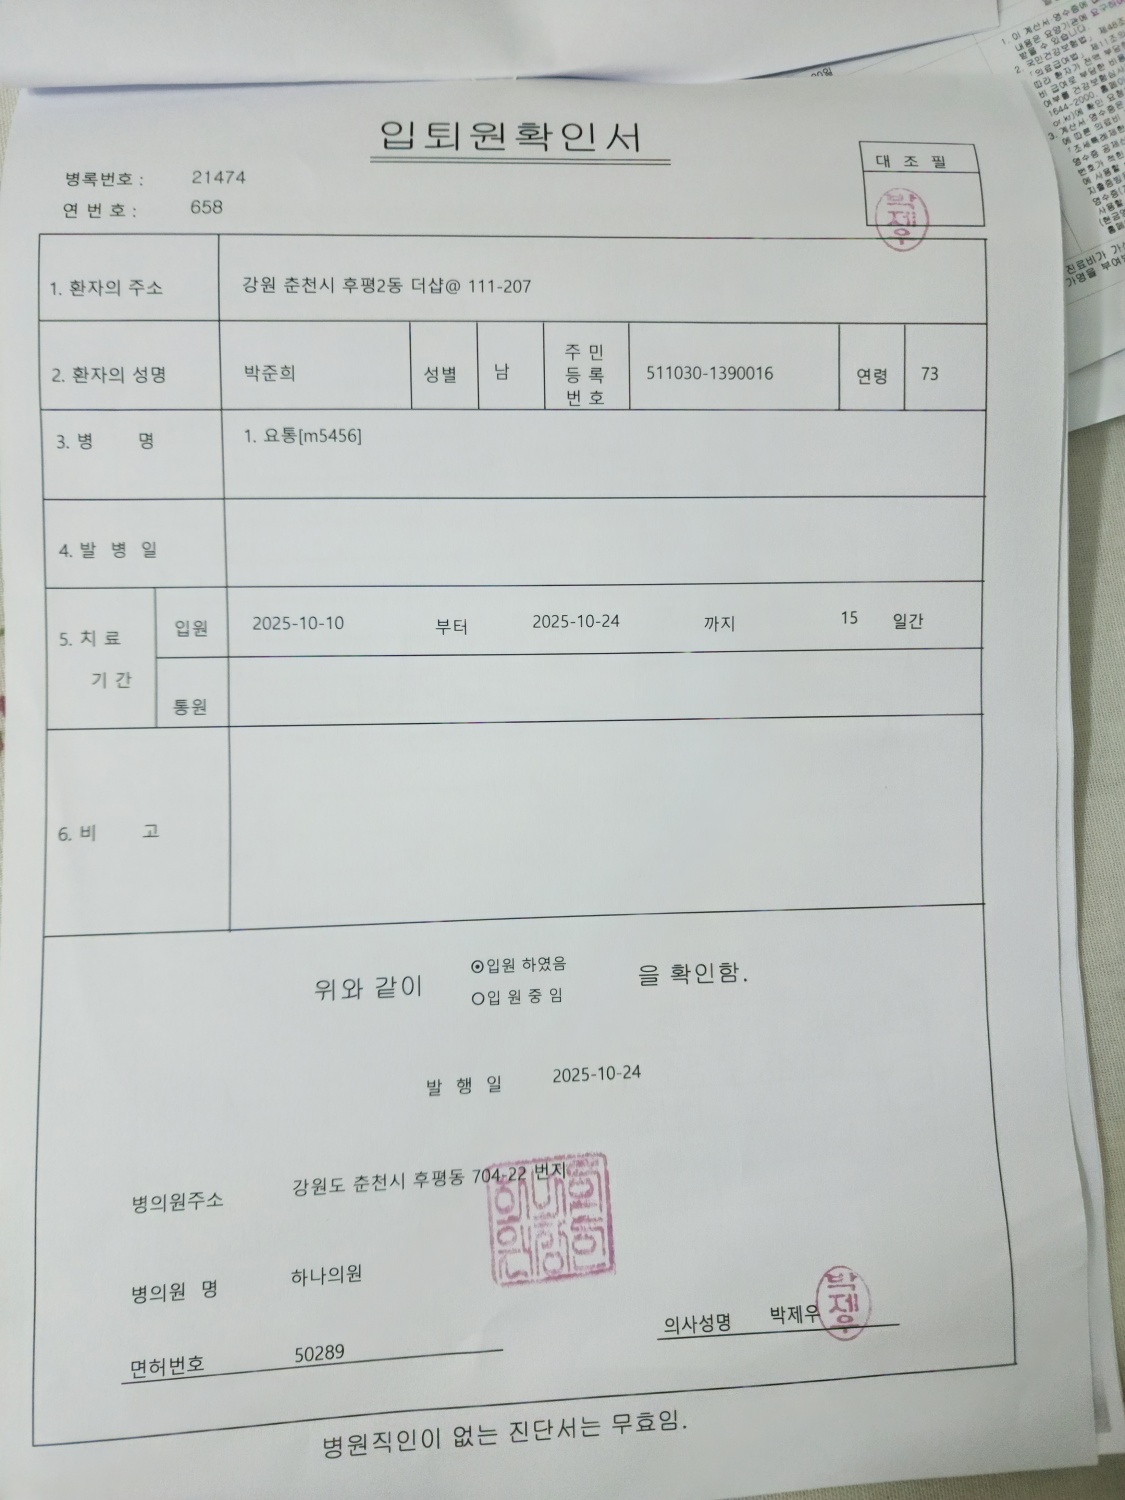 입퇴원확인서
병록번호 : 21474
연 번 호 : 658
대 조 필
박제우
1. 환자의 주소 강원 춘천시 후평2동 더샵@ 111-207
2. 환자의 성명 박준희 성별 남 주 민 등 록 번 호 511030-1390016 연령 73
3. 병 명 1. 요통[m5456]
4. 발 병 일
5. 치 료 기 간
입원 2025-10-10 부터 2025-10-24 까지 15 일간
통원
6. 비 고
위와 같이 ⊙입원 하였음 을 확인함.
○입 원 중 임
발 행 일 2025-10-24
병의원주소 강원도 춘천시 후평동 704-22 번지
병의원 명 하나의원
의사성명 박제우
박제우
면허번호 50289
병원직인이 없는 진단서는 무효임.